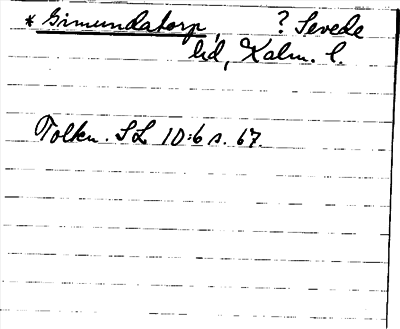 * Gimundatorp, ? Sevede
hd, Kalm. l.
Tolkn. SL 10:6 s. 67.